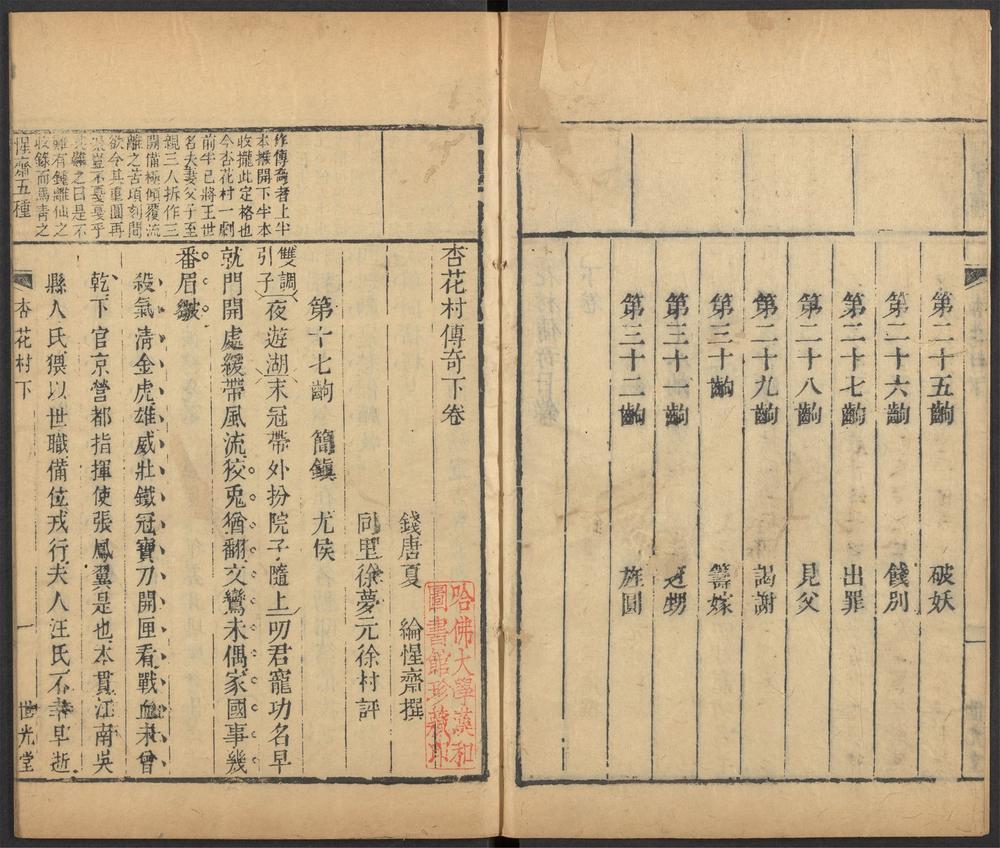 第二十五齣 破妖
第二十六齣 餞別
第二十七齣 出罪
第二十八齣 見父
第二十九齣 謁謝
第三十齣 籌嫁
第三十一齣 迓甥
第三十二齣 旌圓
杏花村傳奇下卷
錢唐夏 綸惺齋撰
同里徐夢元徐村評
第十七齣 簡鎭 尤侯
雙調引子
夜遊湖末冠帶外扮院子隨上叨君寵功名早
就門開處緩帶風流狡兎猶翻文鸞未偶家國事幾
番眉皺
殺氣淸金虎雄威壯鐵冠寶刀開匣看戰血未曾
乾下官京營都指揮使張鳳翼是也本貫江南吳
縣人氏猥以世職備位戎行夫人汪氏不幸早逝
作傳奇者上半
本撒開下半本
收攏此定格也
今杏花村一劇
前半已將王世
名夫妻父子至
親三人拆作三
開備極傾覆流
離之苦頃刻間
欲令其重圓再
聚豈不戛戛乎
其難之曰是不
難有鍾離仙之
收錄而爲靑之
惺齋五種
杏花村下
一
世光堂
哈佛大學漢和
圖書館珍藏印